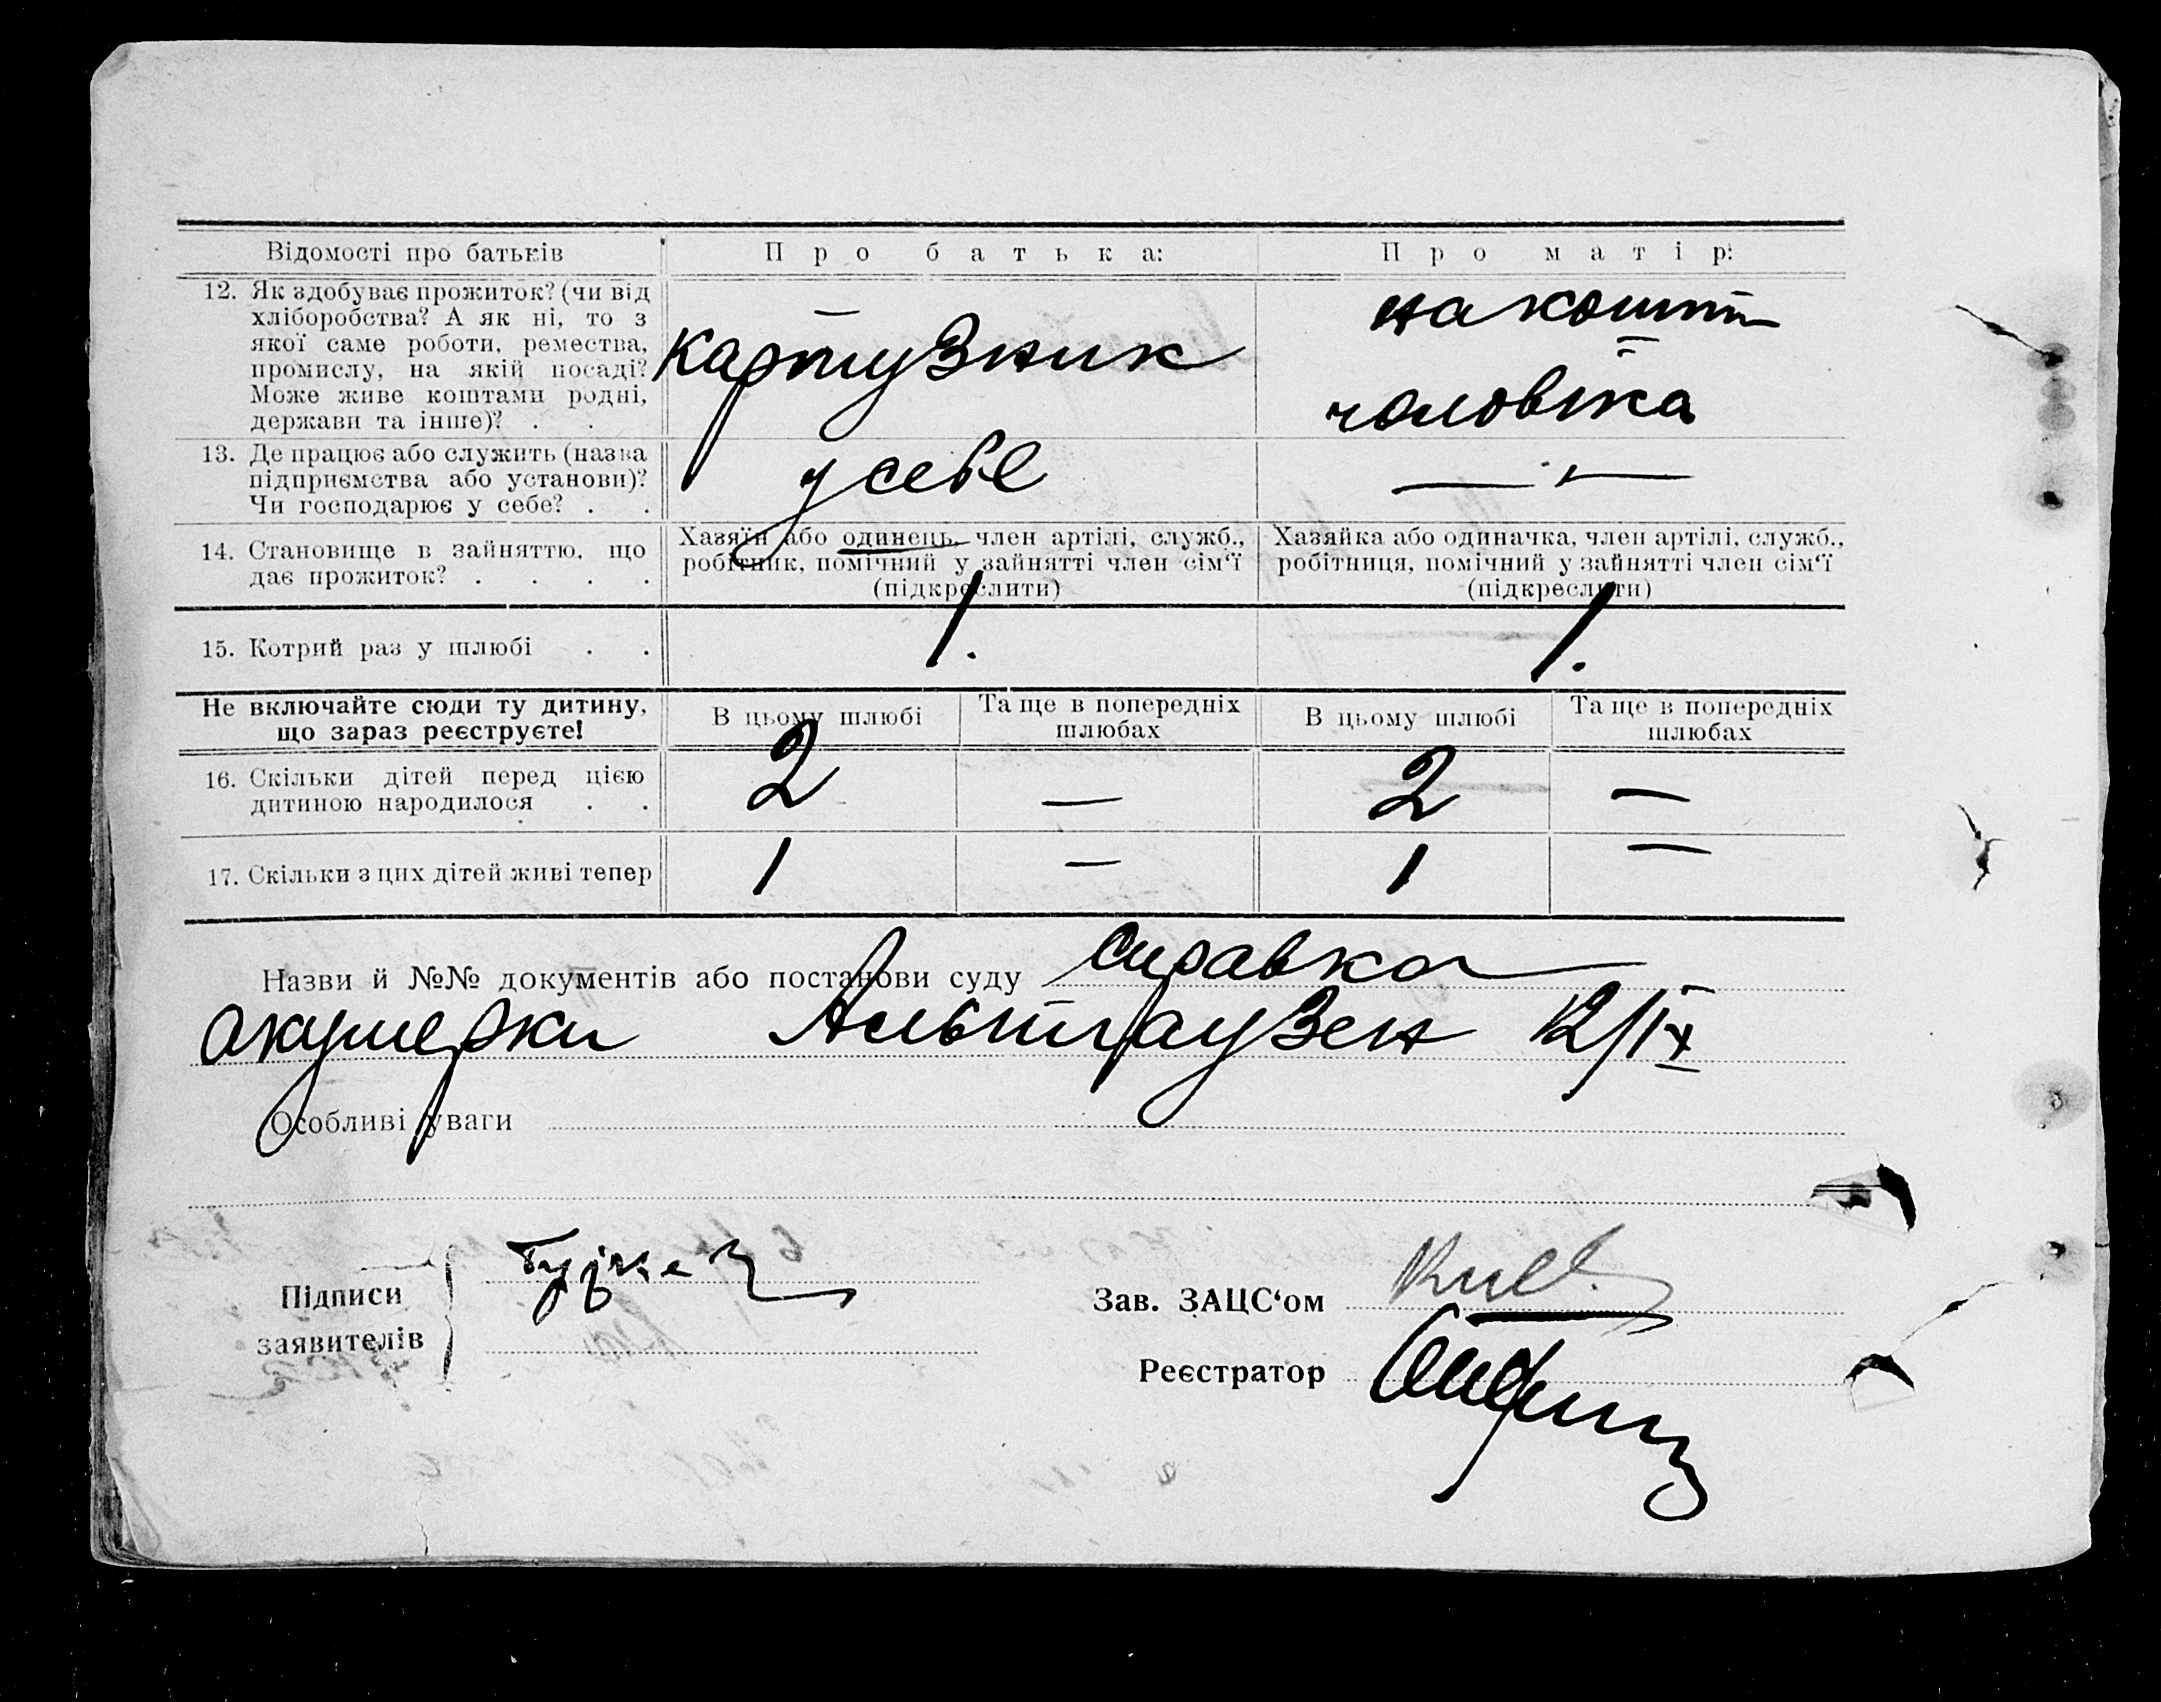 Відомості про батьків
Про батька:
Про матір:
12. Як здобуває прожиток? (чи від
хліборобства? А як ні, то з
якої саме роботи, ремества,
промислу, на якій посаді?
Може живе коштами родні,
держави та інше)? . .
картузник
на кошти
чоловіка
13. Де працює або служить (назва
підприємства або установи)?
Чи господарює у себе? . .
у себе
— " —
14. Становище в зайняттю, що
дає прожиток? . . . .
Хазяїн або одинець, член артілі, служб.,
робітник, помічний у зайнятті член сім‘ї
(підкреслити)
Хазяйка або одиначка, член артілі, служб.,
робітниця, помічний у зайнятті член сім‘ї
(підкреслити)
15. Котрий раз у шлюбі . .
1.
1.
Не включайте сюди ту дитину,
що зараз реєструєте!
В цьому шлюбі
Та ще в попередніх
шлюбах
В цьому шлюбі
Та ще в попередніх
шлюбах
16. Скільки дітей перед цією
дитиною народилося . .
2
—
2
—
17. Скільки з цих дітей живі тепер
1
—
1
—
Назви й №№ документів або постанови суду справка
акушерки Альтгаузен 12/IX
Особливі уваги
Підписи
заявителів
Зав. ЗАЦС‘ом
Реєстратор